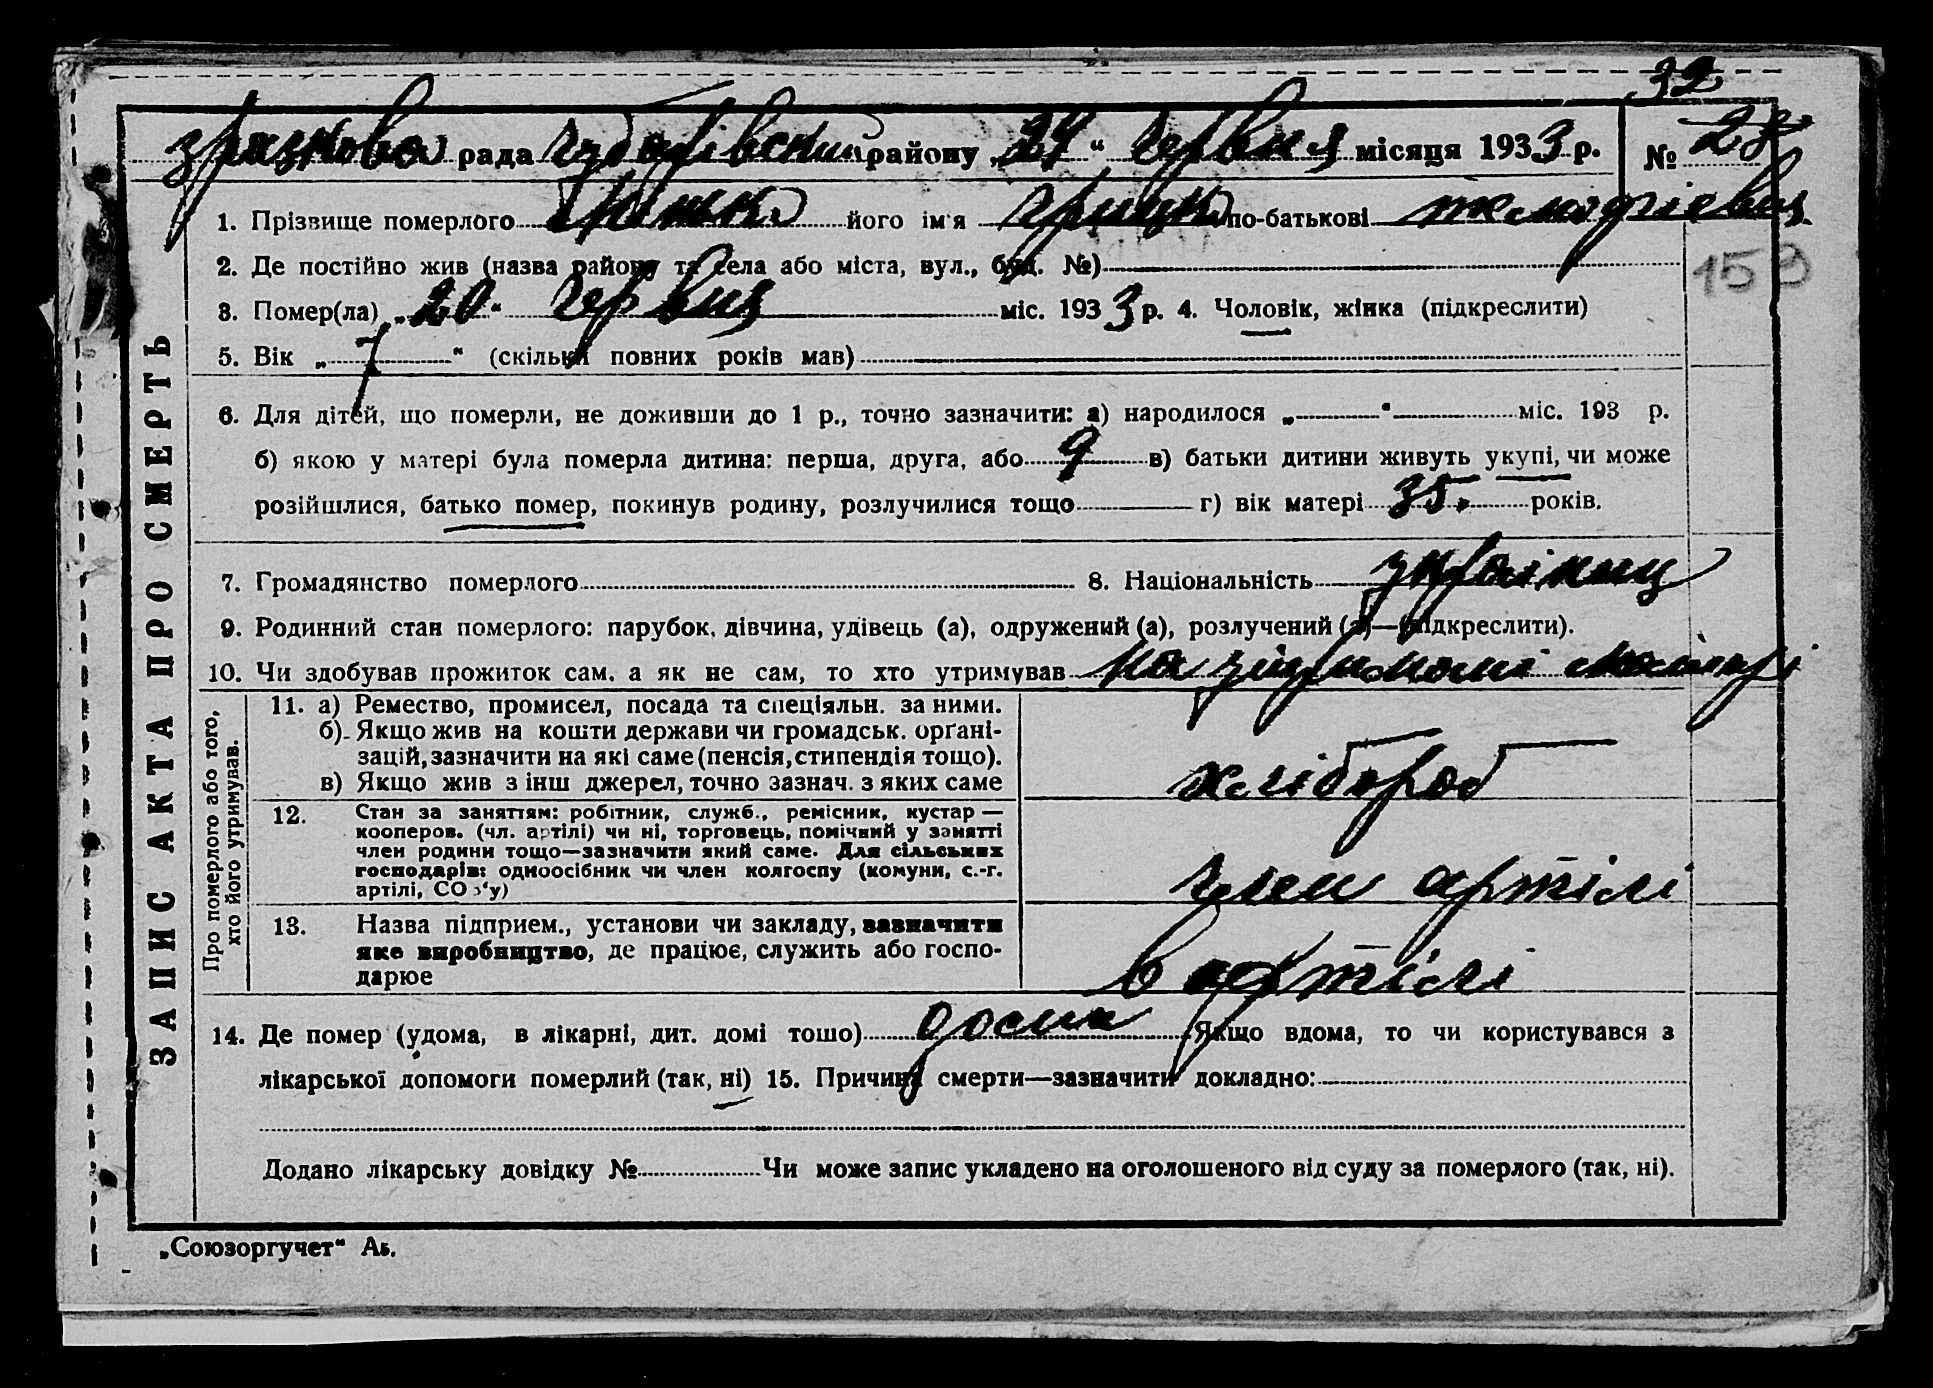 32
рада Чубарівський району „24“ червня місяця 1933 р. № 28
1. Прізвище померлого його ім'я Гриць по-батькові
159
2. Де постійно жив (назва району та села або міста, вул., буд. №)
3. Помер(ла) „20“ червня міс. 1933 р. 4. Чоловік, жінка (підкреслити)
5. Вік „7“ (скільки повних років мав)
6. Для дітей, що померли, не доживши до 1 р., точно зазначити: а) народилося „ “ міс. 193 р.
б) якою у матері була померла дитина: перша, друга, або 9 в) батьки дитини живуть укупі, чи може
розійшлися, батько помер, покинув родину, розлучилися тощо г) вік матері 35. років.
7. Громадянство померлого 8. Національність українец
9. Родинний стан померлого: парубок, дівчина, удівець (а), одружений (а), розлучений (а)—(підкреслити).
10. Чи здобував прожиток сам, а як не сам, то хто утримував на утриманні матері
ЗАПИС АКТА ПРО СМЕРТЬ
Про померлого або того, хто його утримував.
11. а) Ремество, промисел, посада та спеціяльн. за ними.
б) Якщо жив на кошти держави чи громадськ. орґані-
зацій, зазначити на які саме (пенсія, стипендія тощо).
в) Якщо жив з інш джерел, точно зазнач. з яких саме
хлібороб
12. Стан за заняттям: робітник, служб., ремісник, кустар —
кооперов. (чл. артілі) чи ні, торговець, помічний у занятті
член родини тощо—зазначити який саме. Для сільських
господарів: одноосібник чи член колгоспу (комуни, с.-г.
артілі, СОЗ'у)
член артілі
13. Назва підприєм., установи чи закладу, зазначити
яке виробництво, де працює, служить або госпо-
дарює
в артілі
14. Де помер (удома, в лікарні, дит. домі тошо) дома Якщо вдома, то чи користувався з
лікарської допомоги померлий (так, ні) 15. Причина смерти—зазначити докладно:
Додано лікарську довідку № Чи може запис укладено на оголошеного від суду за померлого (так, ні).
„Союзоргучет“ Аз.